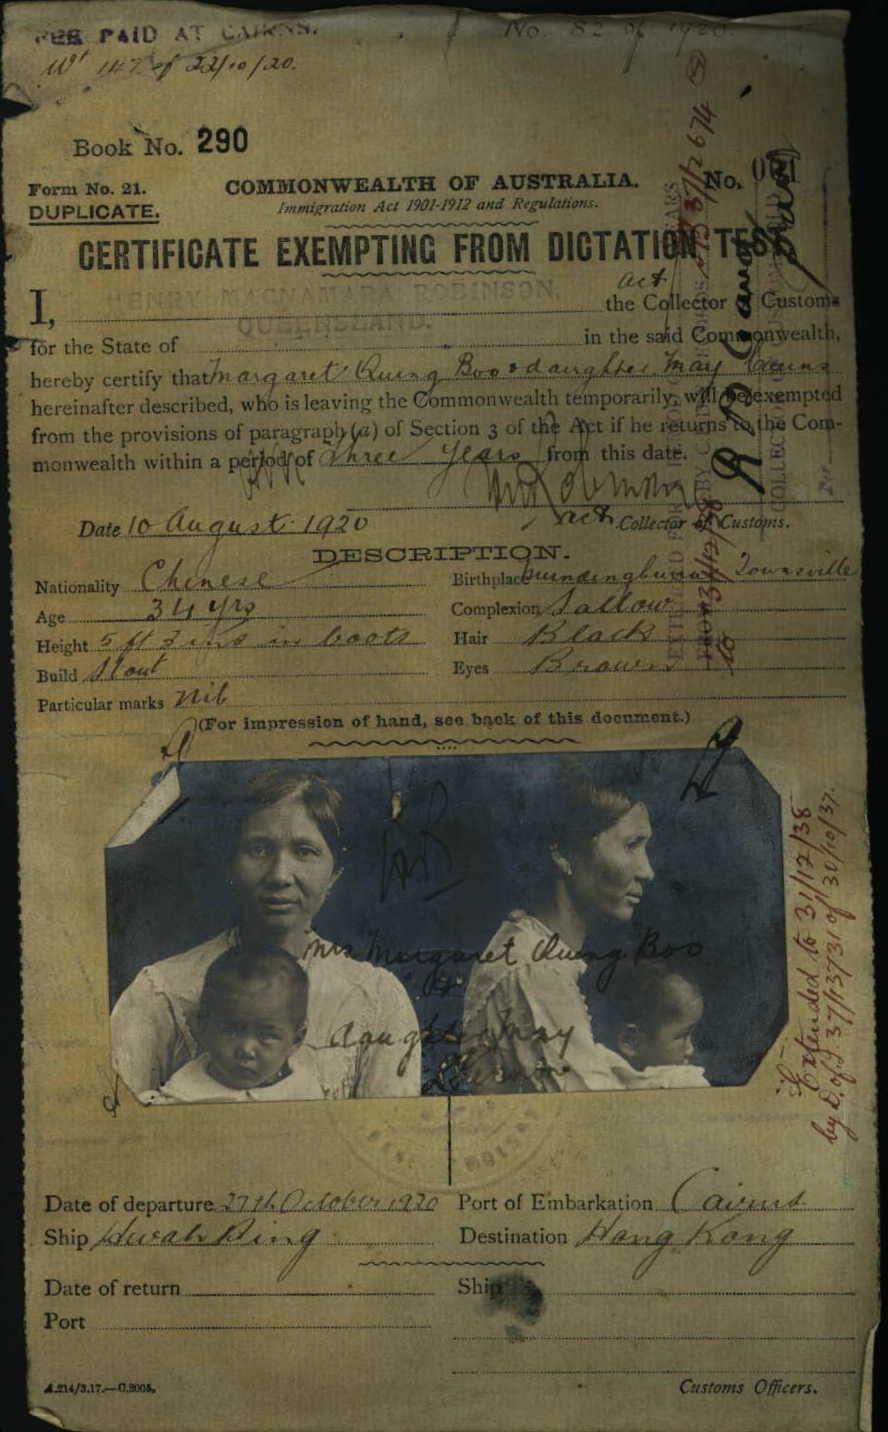 FEE PAID AT CAIRNS.
No. 82 of 1920.
Wt 147 of 22/10/20.
Book No. 290
Form No. 21.
COMMONWEALTH OF AUSTRALIA.
No.
DUPLICATE.
Immigration Act 1901-1912 and Regulations.
CERTIFICATE EXEMPTING FROM DICTATION TEST
HENRY MACNAMARA ROBINSON,
act
I, the Collector of Customs
QUEENSLAND.
for the State of in the said Commonwealth,
hereby certify that Margaret Quing Boo & daughter May
hereinafter described, who is leaving the Commonwealth temporarily, will be exempted
from the provisions of paragraph (a) of Section 3 of the Act if he returns to the Com-
monwealth within a period of Three Years from this date.
Date 10 August 1920
Act Collector of Customs.
DESCRIPTION.
Nationality Chinese
Birthplace Townsville
Age 34 yrs
Complexion Sallow
Height 5 ft 3 ins in boots
Hair Black
Build Stout
Eyes Brown
Particular marks Nil
(For impression of hand, see back of this document.)
Mrs Margaret Quing Boo
&
daughter May
Extended to 31/12/38
by D. of I 37/13731 of 30/10/37.
Date of departure 27th October 1920
Port of Embarkation Cairns
Ship Hwah Ping
Destination Hong Kong
Date of return
Ship
Port
A.214/3.17.—C.2005.
Customs Officers.